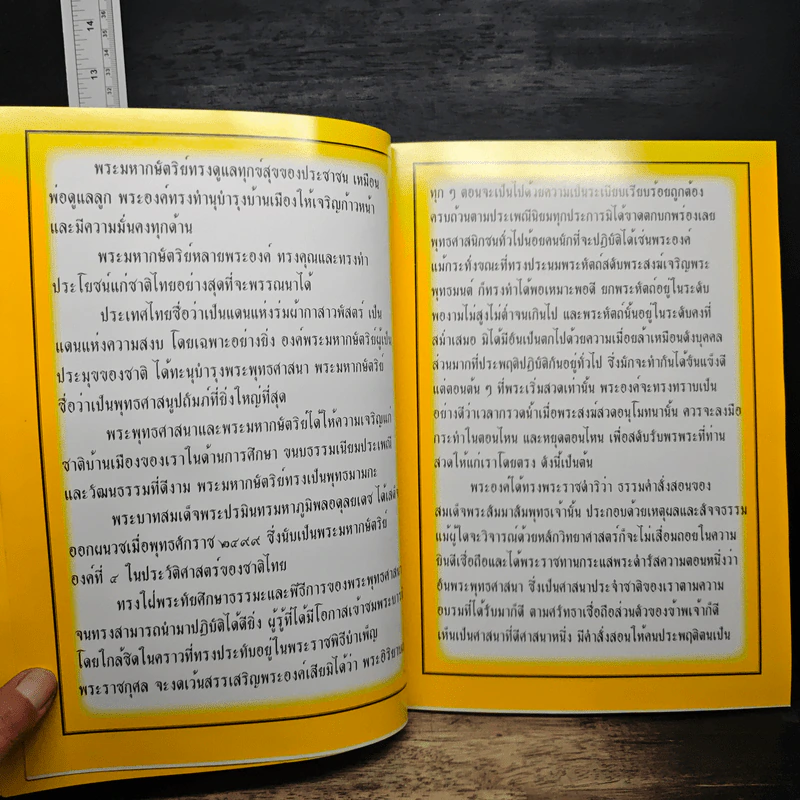 14
13
พระมหากษัตริย์ทรงดูแลทุกข์สุขของประชาชน เหมือน
พ่อดูแลลูก พระองค์ทรงทำนุบำรุงบ้านเมืองให้เจริญก้าวหน้า
และมีความมั่นคงทุกด้าน
พระมหากษัตริย์หลายพระองค์ ทรงคุณและทรงทำ
ประโยชน์แก่ชาติไทยอย่างสุดที่จะพรรณนาได้
ประเทศไทยชื่อว่าเป็นแดนแห่งร่มผ้ากาสาวพัสตร์ เป็น
แดนแห่งความสงบ โดยเฉพาะอย่างยิ่ง องค์พระมหากษัตริย์ผู้เป็น
ประมุขของชาติ ได้ทะนุบำรุงพระพุทธศาสนา พระมหากษัตริย์
ชื่อว่าเป็นพุทธศาสนูปถัมภ์ที่ยิ่งใหญ่ที่สุด
พระพุทธศาสนาและพระมหากษัตริย์ได้ให้ความเจริญแก่
ชาติบ้านเมืองของเราในด้านการศึกษา ขนบธรรมเนียมประเพณี
และวัฒนธรรมที่ดีงาม พระมหากษัตริย์ทรงเป็นพุทธมามกะ
พระบาทสมเด็จพระปรมินทรมหาภูมิพลอดุลยเดช ได้เสด็จ
ออกผนวชเมื่อพุทธศักราช ๒๔๙๙ ซึ่งนับเป็นพระมหากษัตริย์
องค์ที่ ๔ ในประวัติศาสตร์ของชาติไทย
ทรงใฝ่พระทัยศึกษาธรรมะและพิธีการของพระพุทธศาสนา
จนทรงสามารถนำมาปฏิบัติได้ดียิ่ง ผู้รู้ที่ได้มีโอกาสเข้าชมพระบารมี
โดยใกล้ชิดในคราวที่ทรงประทับอยู่ในพระราชพิธีบำเพ็ญ
พระราชกุศล จะงดเว้นสรรเสริญพระองค์เสียมิได้ว่า
ทุก ๆ ตอนจะเป็นไปด้วยความเป็นระเบียบเรียบร้อยถูกต้อง
ครบถ้วนตามประเพณีนิยมทุกประการมิได้ขาดตกบกพร่องเลย
พุทธศาสนิกชนทั่วไปน้อยคนนักที่จะปฏิบัติได้เช่นพระองค์
แม้กระทั่งขณะที่ทรงประนมพระหัตถ์สดับพระสงฆ์เจริญพระ
พุทธมนต์ ก็ทรงทำได้พอเหมาะพอดี ยกพระหัตถ์อยู่ในระดับ
พองามไม่สูงไม่ต่ำจนเกินไป และพระหัตถ์นั้นอยู่ในระดับคงที่
สม่ำเสมอ มิได้มีอันเป็นตกไปด้วยความเมื่อยล้าเหมือนดังบุคคล
ส่วนมากที่ประพฤติปฏิบัติกันอยู่ทั่วไป ซึ่งมักจะทำกันได้ขันแข็งดี
แต่ตอนต้น ๆ ที่พระเริ่มสวดเท่านั้น พระองค์จะทรงทราบเป็น
อย่างดีว่าเวลากรวดน้ำเมื่อพระสงฆ์สวดอนุโมทนานั้น ควรจะลงมือ
กระทำในตอนไหน และหยุดตอนไหน เพื่อสดับรับพรพระที่ท่าน
สวดให้แก่เราโดยตรง ดังนี้เป็นต้น
พระองค์ได้ทรงพระราชดำริว่า ธรรมคำสั่งสอนของ
สมเด็จพระสัมมาสัมพุทธเจ้านั้น ประกอบด้วยเหตุผลและสัจธรรม
แม้ผู้ใดจะวิจารณ์ด้วยหลักวิทยาศาสตร์ก็จะไม่เสื่อมถอยในความ
ยินดีเชื่อถือและได้พระราชทานกระแสพระดำรัสความตอนหนึ่งว่า
อันพระพุทธศาสนา ซึ่งเป็นศาสนาประจำชาติของเราตามความ
อบรมที่ได้รับมาก็ดี ตามศรัทธาเชื่อถือส่วนตัวของข้าพเจ้าก็ดี
เห็นเป็นศาสนาที่ดีศาสนาหนึ่ง มีคำสั่งสอนให้คนประพฤติตนเป็น